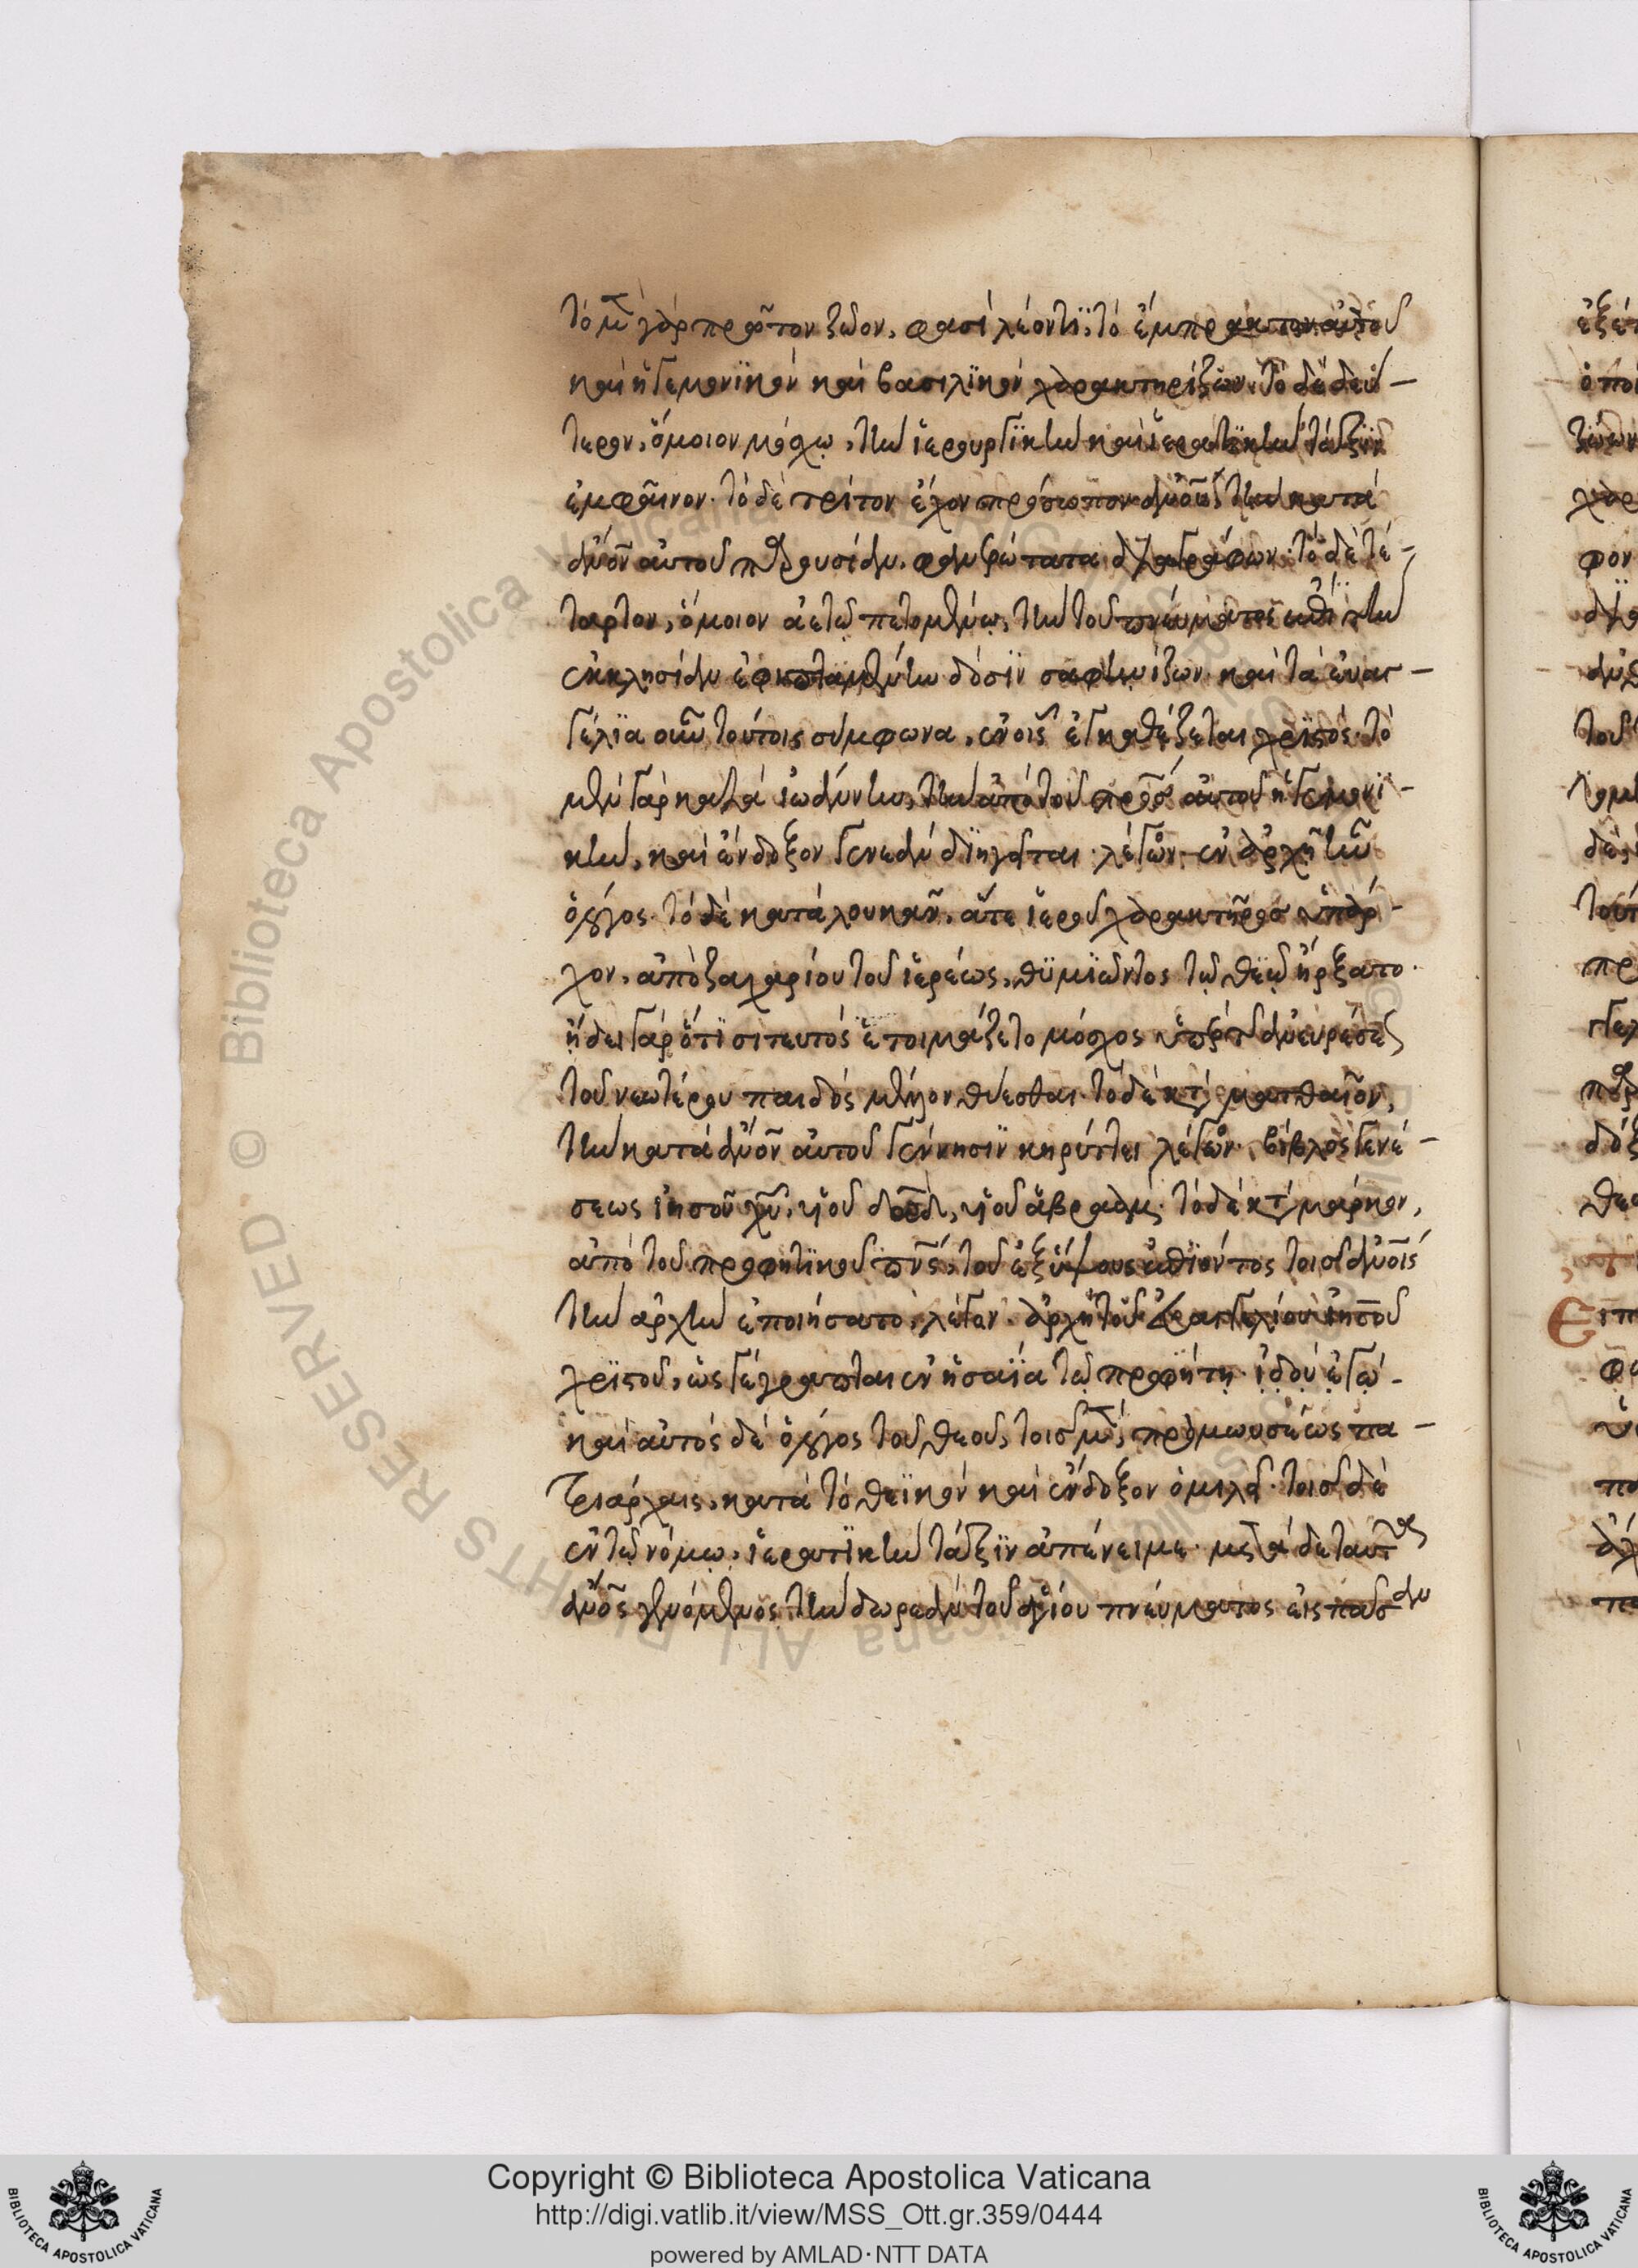 τὸ μ̅ γὰρ πρῶτον ζῶον, φασὶ λέοντϊ, τὸ ἔμπρακτον αὐτοῦ
καὶ ἡγεμονϊκὸν καὶ βασιλϊκὸν χαρακτηρίζων. τὸ δὲ δεύ-
τερον, ὅμοιον μόσχῳ, τὴν ἱερουργϊκὴν καὶ ἱερατϊκὴν τάξϊν
ἐμφαῖνον. τὸ δὲ τρίτον ἔχον πρόσωπον ἀνο̅υ τὴν κατὰ
ἀνο̅ν αὐτοῦ παρουσίαν, φανερώτατα διαγράφων. τὸ δὲ τέ-
ταρτον, ὅμοιον ἀετῷ πετομένῳ, τὴν τοῦ πνεύματος ἐπὶ τὴν
ἐκκλησίαν ἐφιπταμένην δόσϊν σαφηνίζων. καὶ τὰ εὐαγ-
γέλϊα οὖν τούτοις σύμφωνα, ἐν οἷς ἐγκαθέζεται χρϊστός. τὸ
μὲν γὰρ κατὰ ἰωάννην, τὴν ἀπὸ τοῦ πρ̅ς αὐτοῦ ἡγεμονϊ-
κὴν, καὶ ἔνδοξον γενεὰν διηγεῖται. λέγων. ἐν ἀρχῇ ἦν
ὁ λόγος. τὸ δὲ κατὰ λουκᾶν, ἅτε ἱεροῦ χαρακτῆρος ὑπάρ-
χον, ἀπὸ ζαχαρίου τοῦ ἱερέως, θϋμϊῶντος τῷ θεῷ ἤρξατο.
ἤδει γὰρ ὅτϊ σιτευτὸς ἑτοιμάζετο μόσχος ὑπὲρ τ ἀνευρέσεως
τοῦ νεωτέρου παιδὸς μέλλον θύεσθαι. τὸ δὲ κτ̀ ματθαῖον,
τὴν κατὰ ἀνο̅ν αὐτοῦ γέννησϊν κηρύττει λέγων. βίβλος γενέ-
σεως ἰησοῦ χυ̅, υἱοῦ δα̅δ, υἱοῦ ἀβραάμ. τὸ δὲ κτ̀ μάρκον,
ἀπὸ τοῦ προφητϊκοῦ πν̅ς, τοῦ ἐξ ὕψους ἐπϊόντος τοῖς ἀνο̅ις
τὴν ἀρχὴν ἐποιήσατο, λέγον. ἀρχὴ τοῦ εὐαγγελίου ἰησοῦ
χρϊστοῦ, ὡς γέγραπται ἐν ἡσαΐα τῷ προφήτῃ. ἰδοὺ ἐγώ.
καὶ αὐτὸς δὲ ὁ λόγος τοῦ θεοῦ, τοῖς μ̅, πρὸ μωυσέως πα-
τριάρχαις, κατὰ τὸ θεϊκὸν καὶ ἔνδοξον ὁμιλεῖ. τοῖς δὲ
ἐν τῷ νόμῳ, ἱερατϊκὴν τάξϊν ἀπένειμε. μετὰ δὲ ταῦτα
ἀνο̅ς γενόμενος, τὴν δωρεὰν τοῦ ἁγίου πνεύματος εἰς πᾶσαν